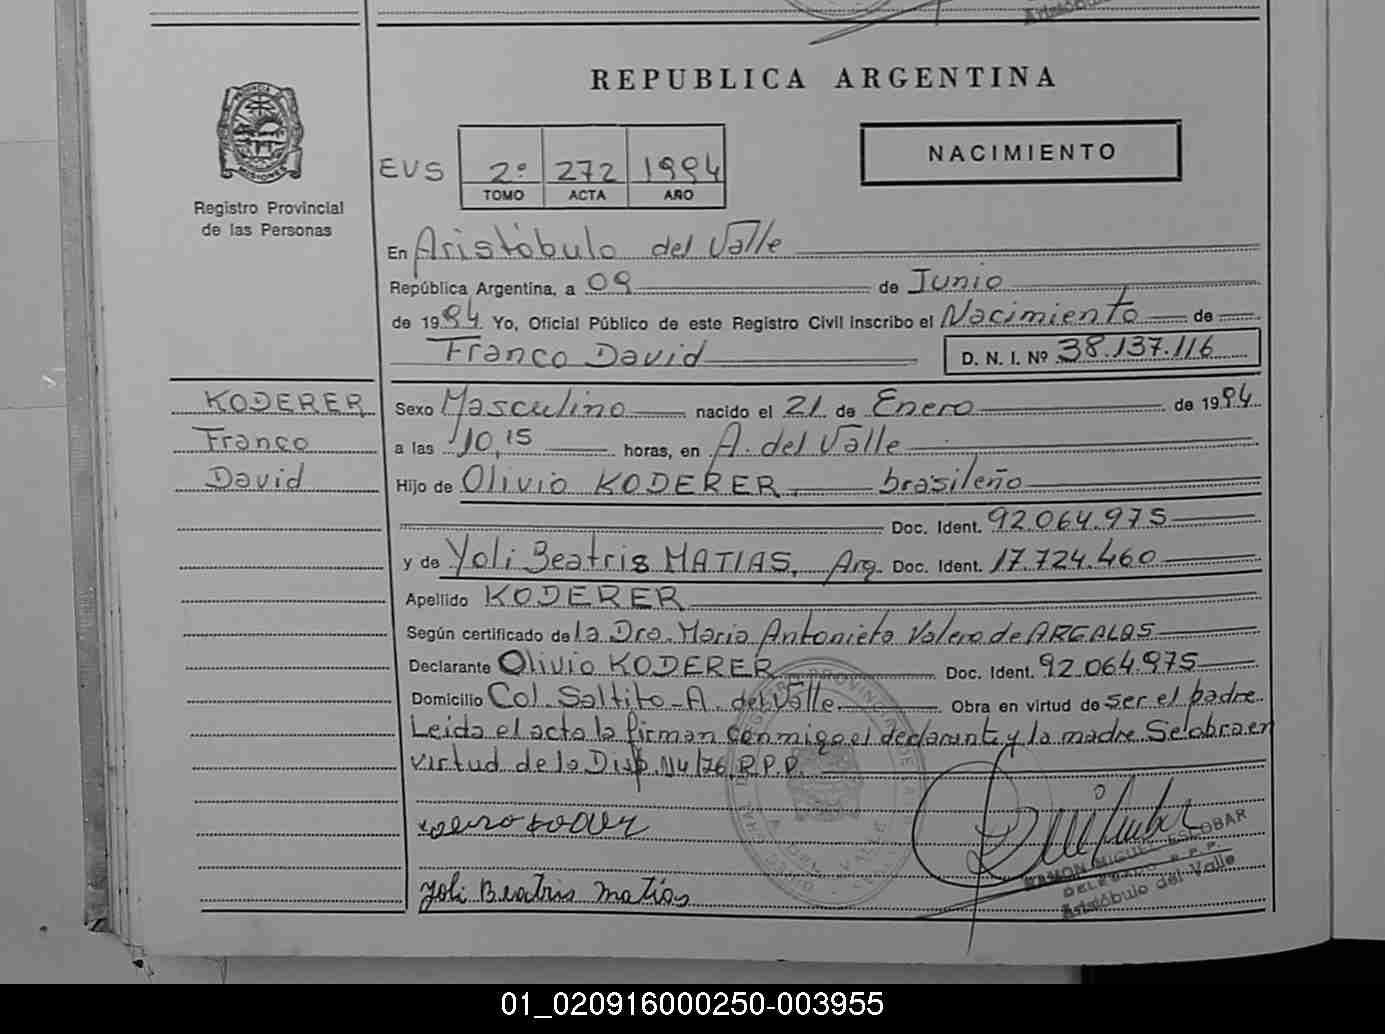 REPUBLICA ARGENTINA
PROVINCIA DE MISIONES
Registro Provincial
de las Personas
EVS 2º 272 1994
TOMO ACTA AÑO
NACIMIENTO
En Aristóbulo del Valle
República Argentina, a 09 de Junio
de 1994 Yo, Oficial Público de este Registro Civil inscribo el Nacimiento de
Franco David D. N. I. Nº 38.137.116
KODERER
Franco
David
Sexo Masculino nacido el 21 de Enero de 1994
a las 10,15 horas, en A. del Valle
Hijo de Olivio KODERER, brasileño
Doc. Ident. 92.064.975
y de Yoli Beatris MATIAS, Arg. Doc. Ident. 17.724.460
Apellido KODERER
Según certificado de la Dra. Maria Antonieta Valero de ARGALAS
Declarante Olivio KODERER Doc. Ident. 92.064.975
Domicilio Col. Saltito - A. del Valle. Obra en virtud de ser el padre.
Leida el acta la firman conmigo el declarante y la madre. Se labra en
virtud de la Disp. 114/76 R.P.P.
Yoli Beatris Matias
RAMON MIGUEL ESCOBAR
DELEGADO R.P.P.
Aristóbulo del Valle
01_020916000250-003955